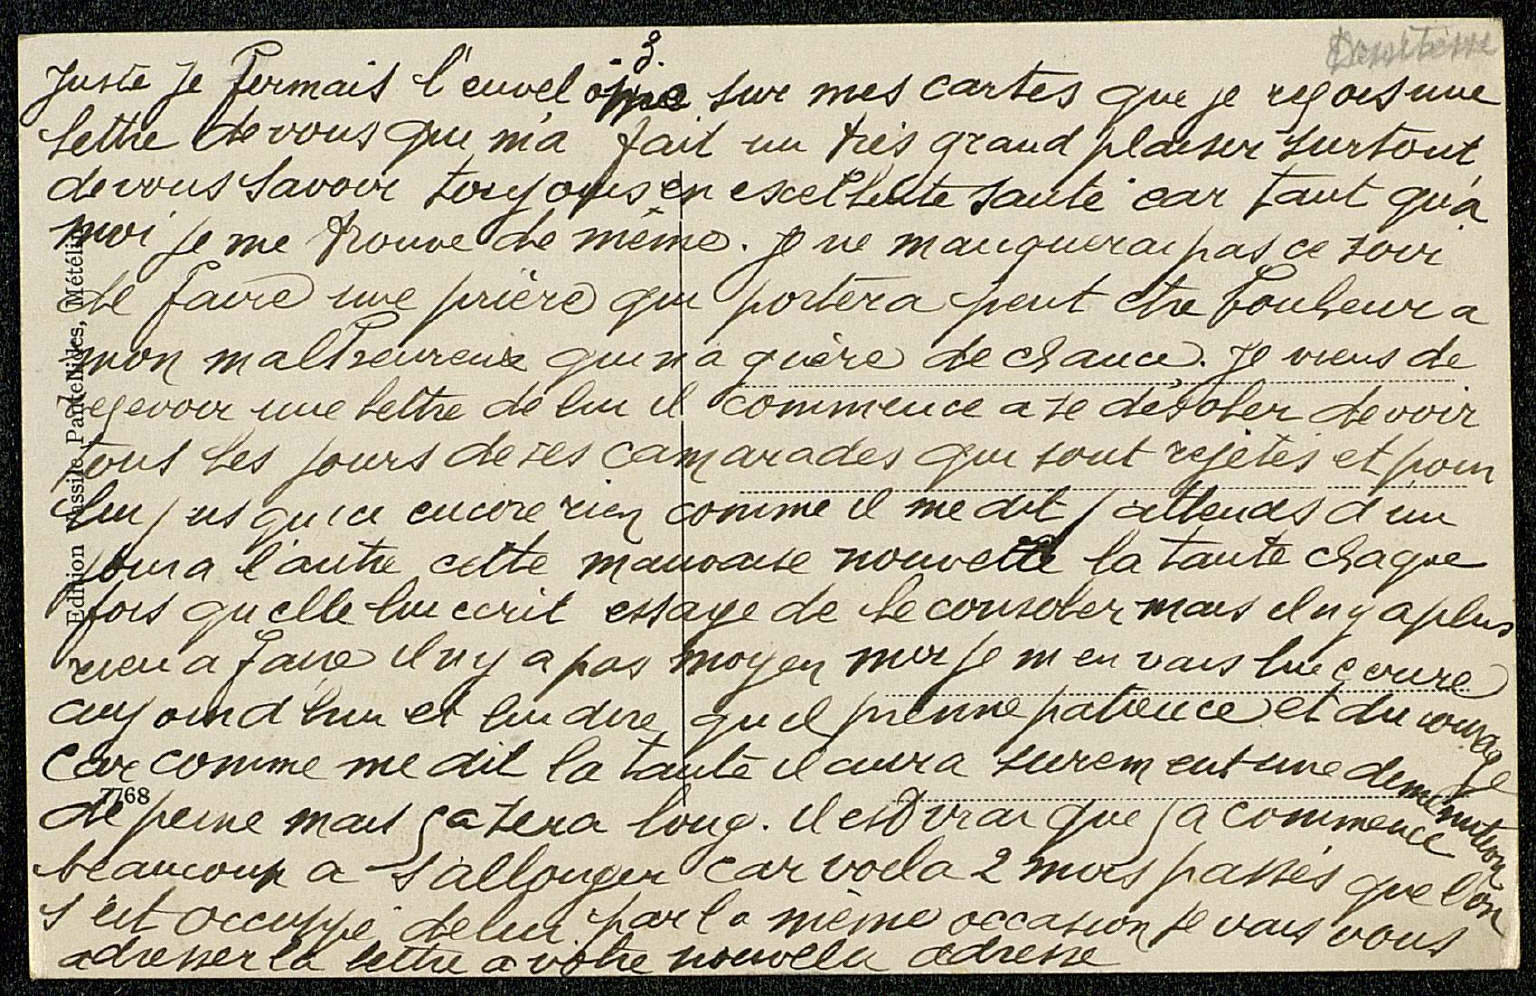 3.
Juste je fermais l'envelope sur mes cartes que je reçois une
lettre de vous qui m'a fait un très grand plaiser surtout
de vous savoir toujours en excellente santé car tant qu'à
moi je me trouve de même. Je ne manquerai pas ce soir
de faire une prière qui portera peut etre bonheur a
mon malheureux qui n'a guère de chance. Je viens de
reçevoir une lettre de lui il commence a se désoler de voir
tous les jours de ses camarades qui sont rejetés et pour
lui jusqu'ici encore rien comme il me dit j'attends d'un
jour a l'autre cette mauvaise nouvelle la tante chaque
fois qu'elle lui ecrit essaye de le consoler mais il n'y a plus
rien a faire il n'y a pas moyen moi je m'en vais lui ecrire
aujourd'hui et lui dire qu'il prenne patience et du courage
car comme me dit la tante il aura surement une deminution
de peine mais ça sera long. il est vrai que ça commence
beaucoup a s'allonger car voila 2 mois passés que l'on
s'est occuppé de lui par la même occasion je vais vous
adresser la lettre a votre nouvelle adresse
Edition Massile Pantelidès, Mételin
7768